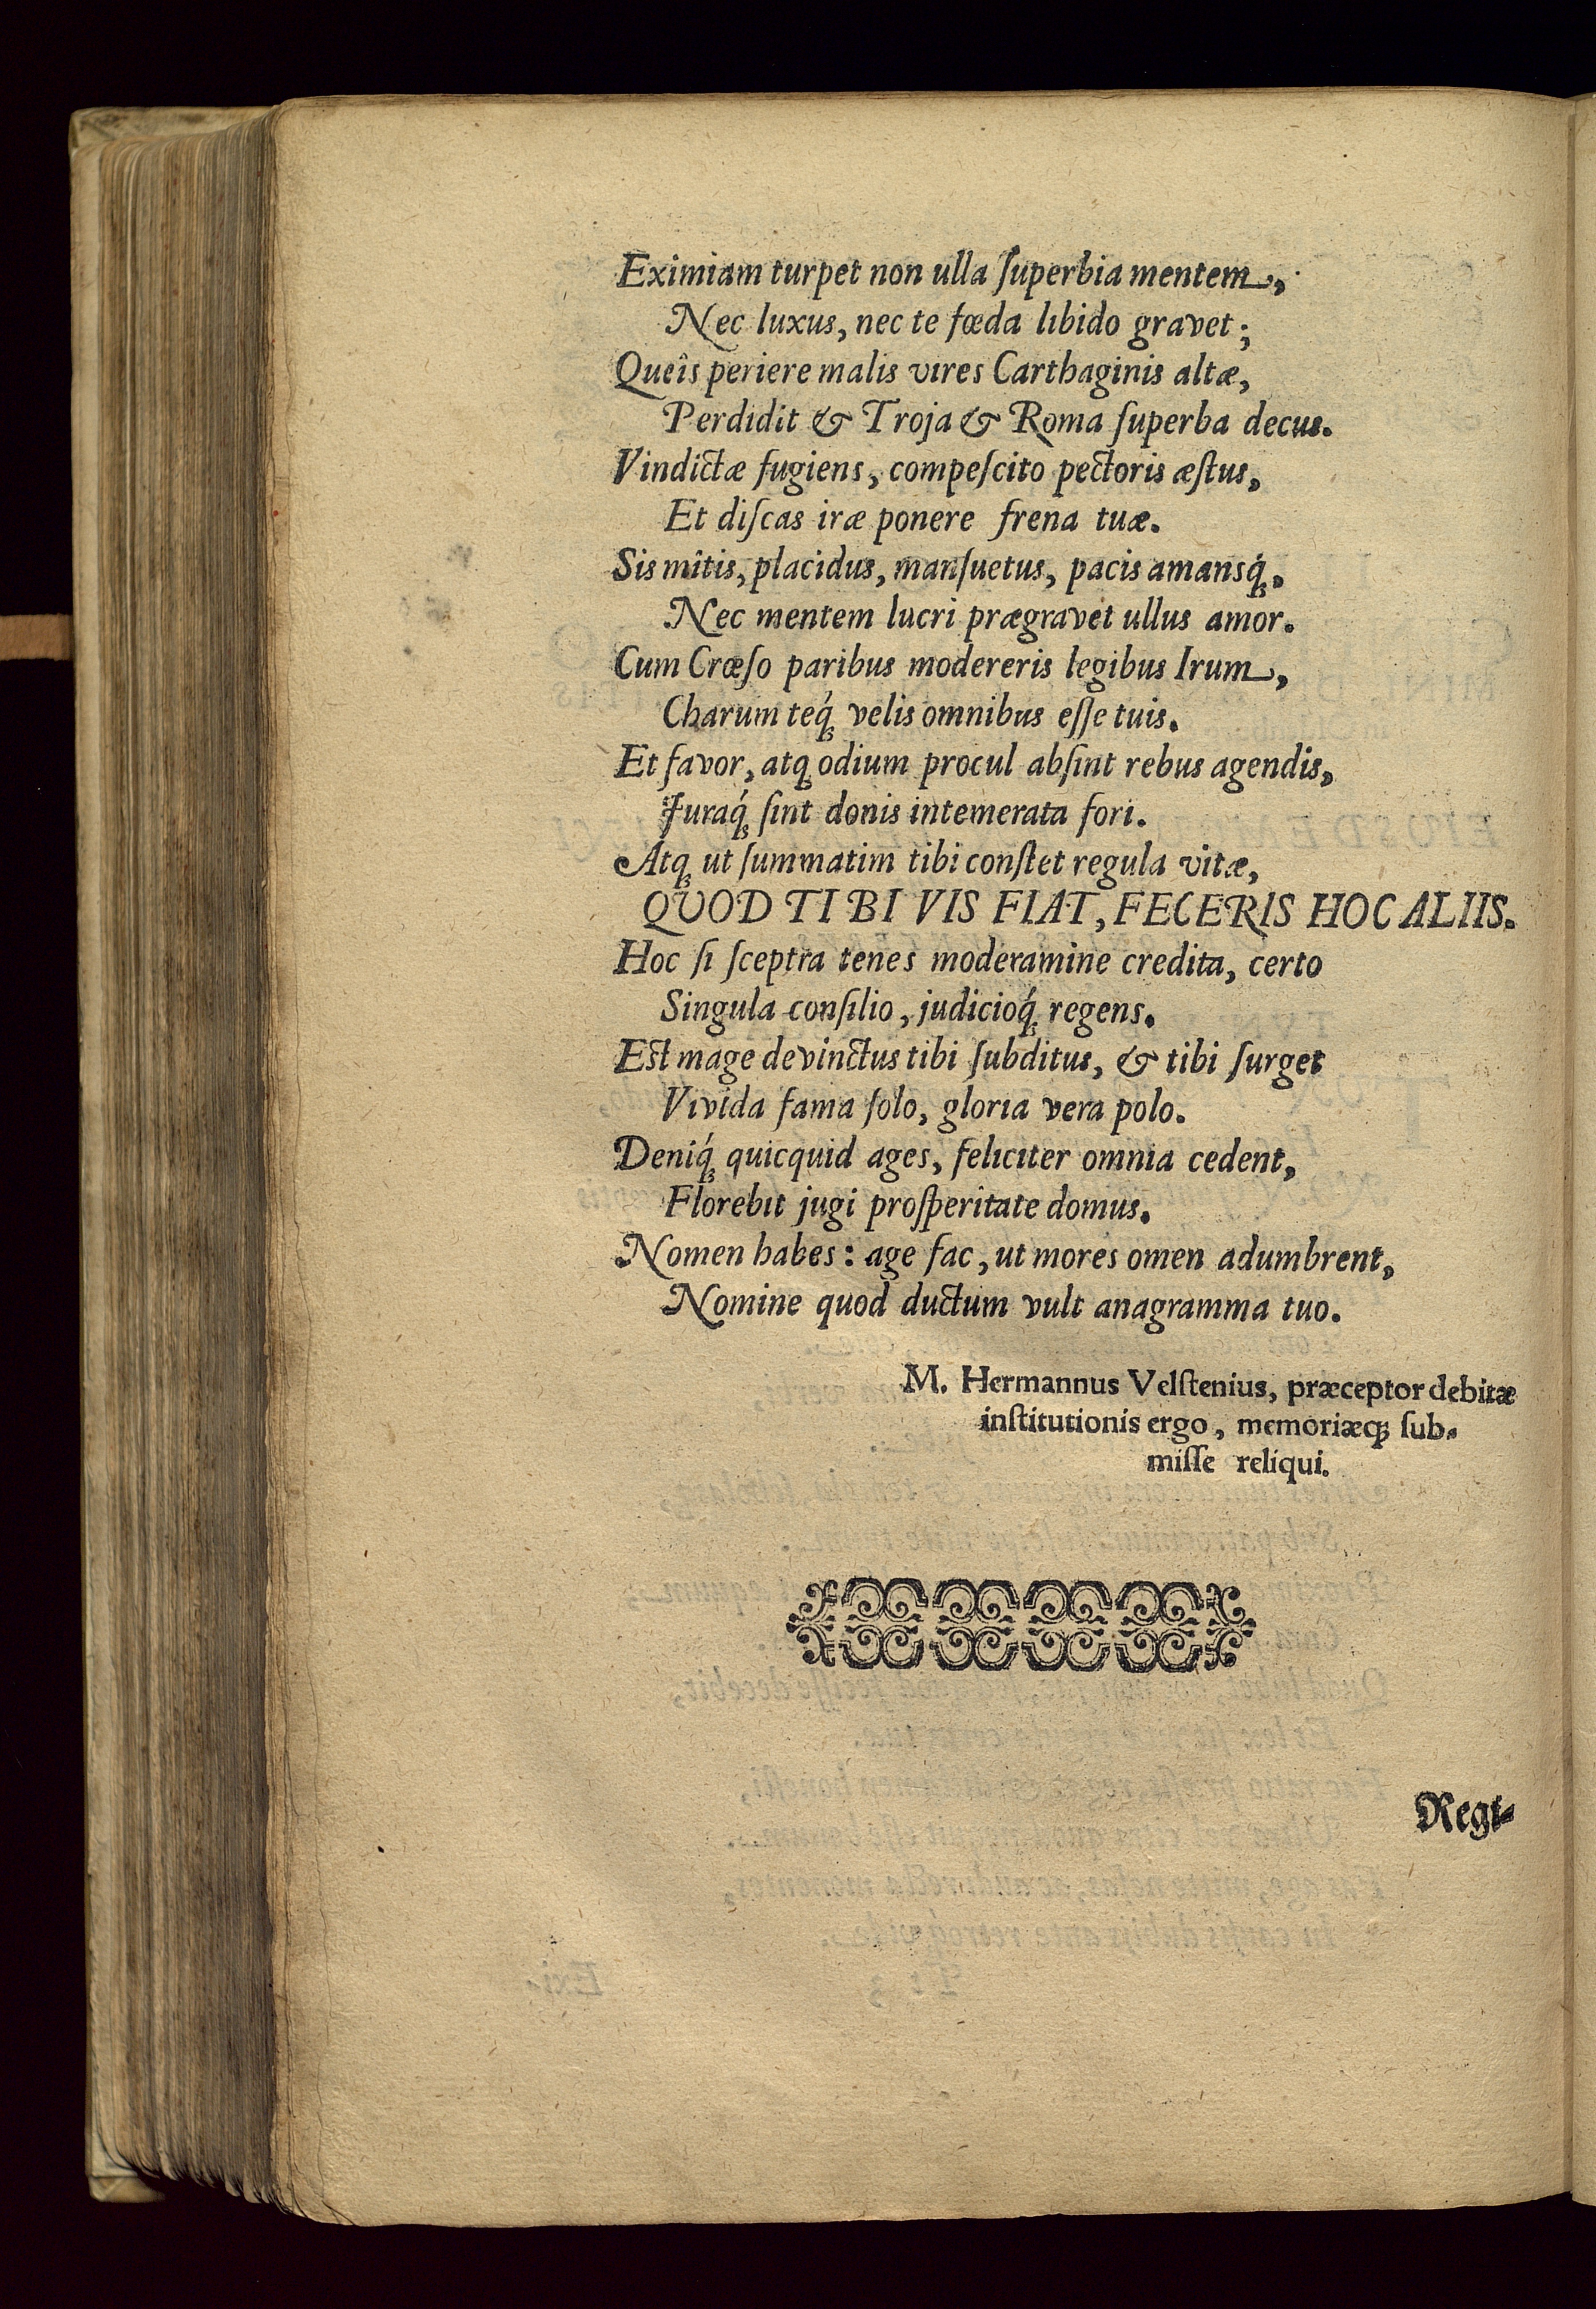 Eximiam turpet non ulla ſuperbia mentem,
Nec luxus, nec te fœda libido gravet;
Queîs periere malis vires Carthaginis altæ,
Perdidit & Troja & Roma ſuperba decus.
Vindictæ fugiens, compeſcito pectoris æſtus,
Et diſcas iræ ponere frena tuæ.
Sis mîtis, placidus, manſuetus, pacis amansq́;,
Nec mentem lucri prægravet ullus amor.
Cum Crœſo paribus modereris legibus Irum,
Charum teq́; velis omnibus eſſe tuis.
Et favor, atq; odium procul abſint rebus agendis,
Juraq́; ſint donis intemerata fori.
Atq; ut ſummatim tibi conſtet regula vitæ,
QUOD TIBI VIS FIAT, FECERIS HOC ALIIS.
Hoc ſi ſceptra tenes moderamine credita, certo
Singula conſilio, judicioq́; regens.
Eſt mage devinctus tibi ſubditus, & tibi ſurget
Vivida fama ſolo, gloria vera polo.
Deniq́; quicquid ages, feliciter omnia cedent,
Florebit jugi proſperitate domus.
Nomen habes: age fac, ut mores omen adumbrent,
Nomine quod ductum vult anagramma tuo.
M. Hermannus Velſtenius, præceptor debitæ
inſtitutionis ergo, memoriæq; ſub-
miſſe reliqui.
Regi-